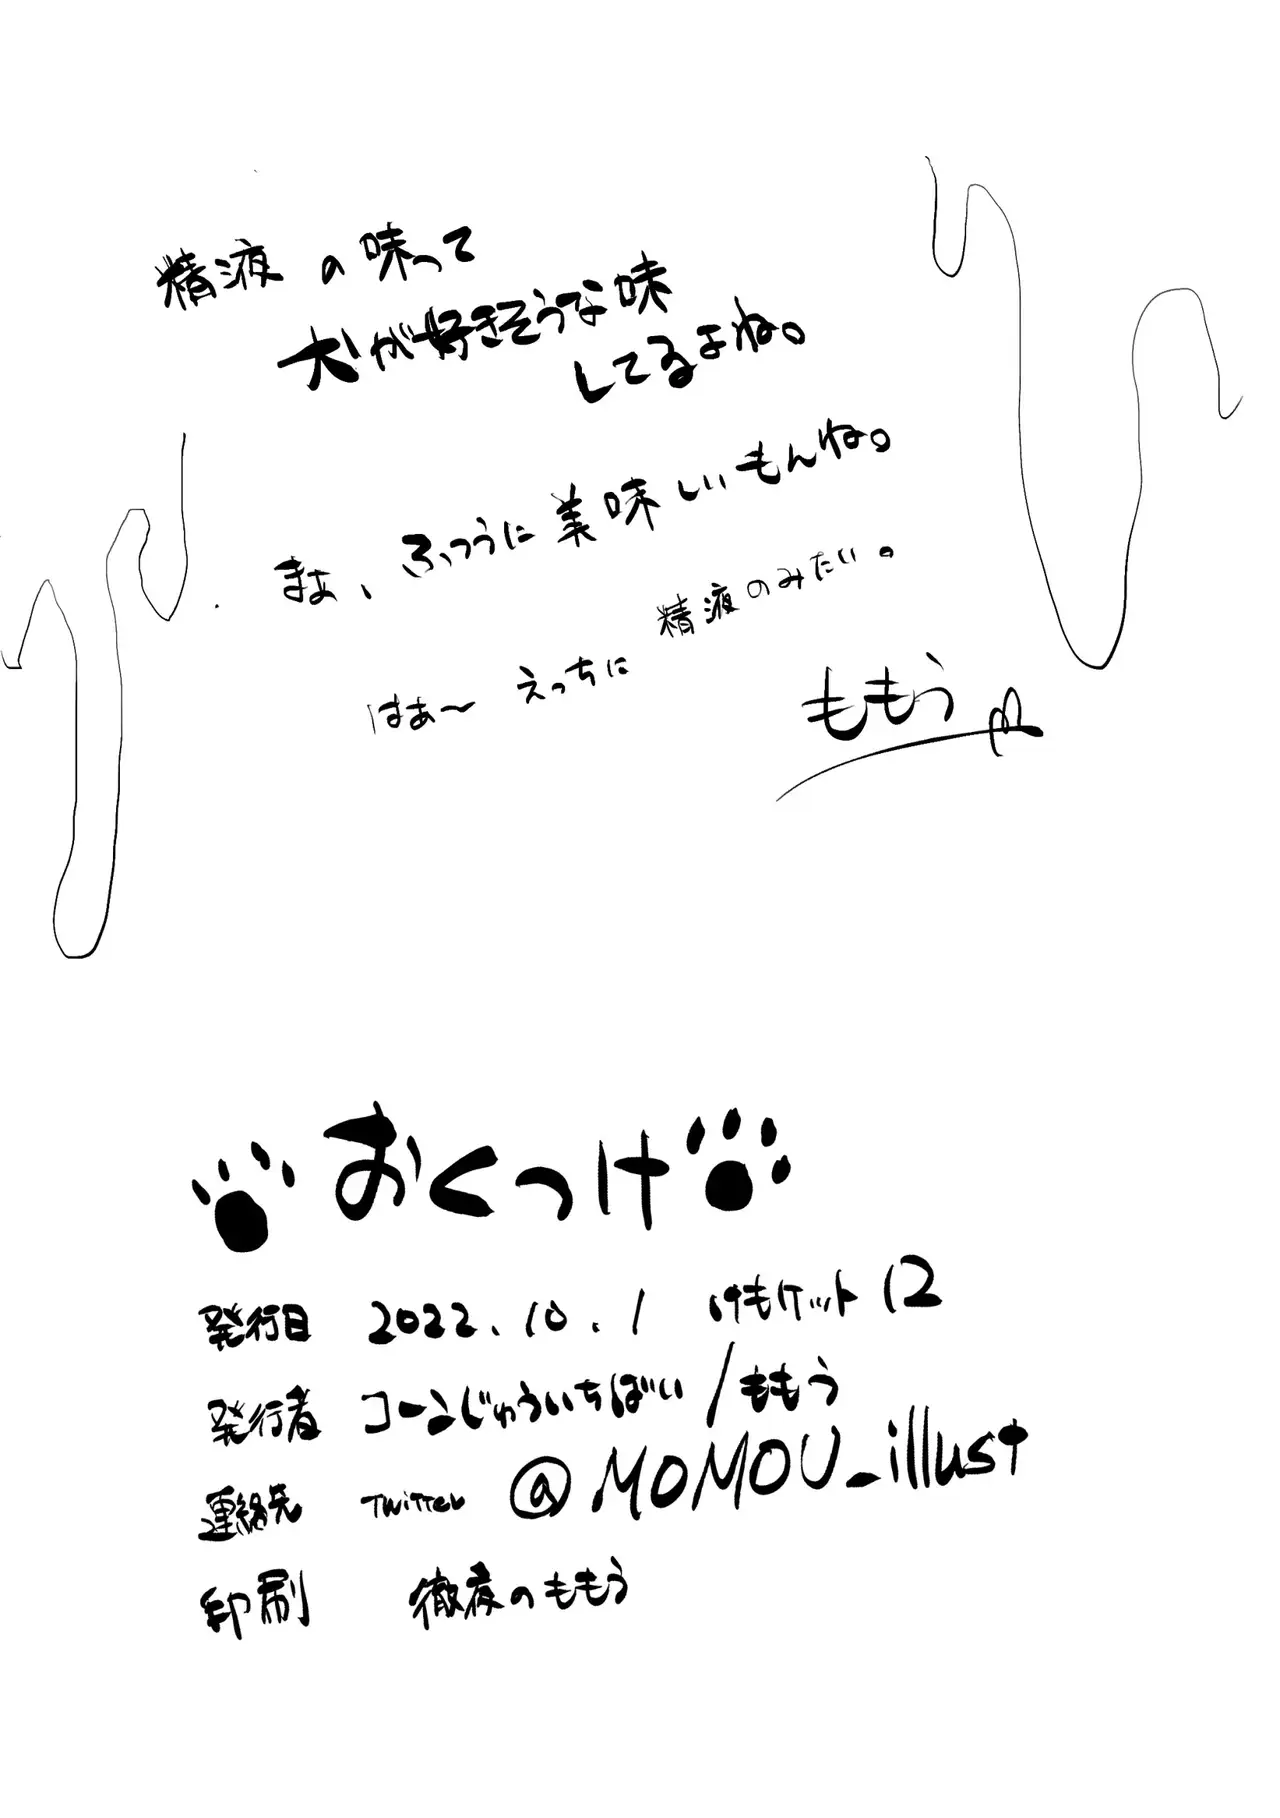 精液の味って
犬が好きそうな味
してるよね。
まぁ、ふつうに美味しいもんね。
はぁ〜 えっちに 精液のみたい。
ももう
おくづけ
発行日 2022.10.1 けもケット12
発行者 コーンじゅういちばい/ももう
連絡先 Twitter @MOMOU_illust
印刷 徹夜のももう